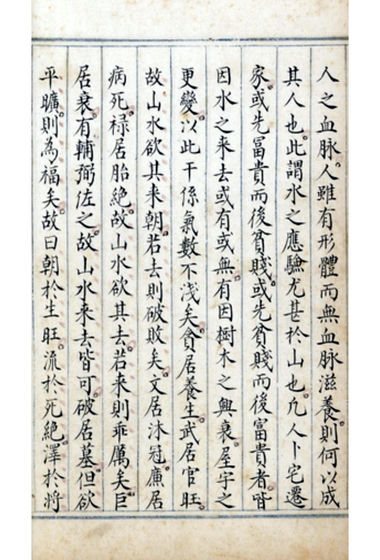 人之血脉人雖有形體而無血脉滋養則何以成
其人也此謂水之應驗尤甚於山也凢人卜宅遷
家或先富貴而後貧賤或先貧賤而後富貴者皆
因水之来去或有或無有因樹木之興衰屋宇之
更變以此干係氣數不淺矣貪居養生武居官旺
故山水欲其来朝若去則破敗矣文居沐冠廉居
病死禄居胎絶故山水欲其去若来則乖厲矣巨
居衰有輔弼佐之故山水来去皆可破居墓但欲
平曠則為福矣故曰朝於生旺流於死絶澤於將